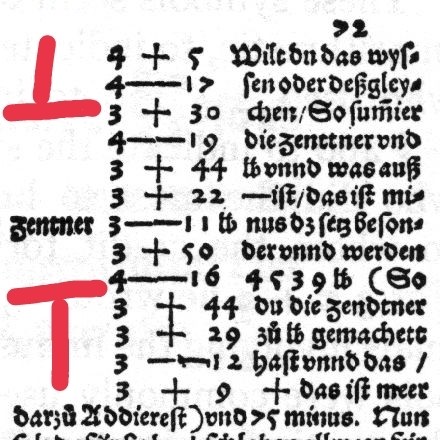 72
4 + 5 Wilt du das wys⸗
4 — 17 sen oder deßgley⸗
3 + 30 chen/ So sum̄ier
4 — 19 die zenttner vnd
3 + 44 lb vnnd was auß
3 + 22 — ist/ das ist mi⸗
zentner 3 — 11 lb nus dz setz beson⸗
3 + 50 der vnnd werden
4 — 16 4539 lb (So
3 + 44 du die zendtner
3 + 29 zů lb gemachett
3 — 12 hast vnnd das /
3 + 9 + das ist meer
darzů Addierest) vnd >5 minus. Nun